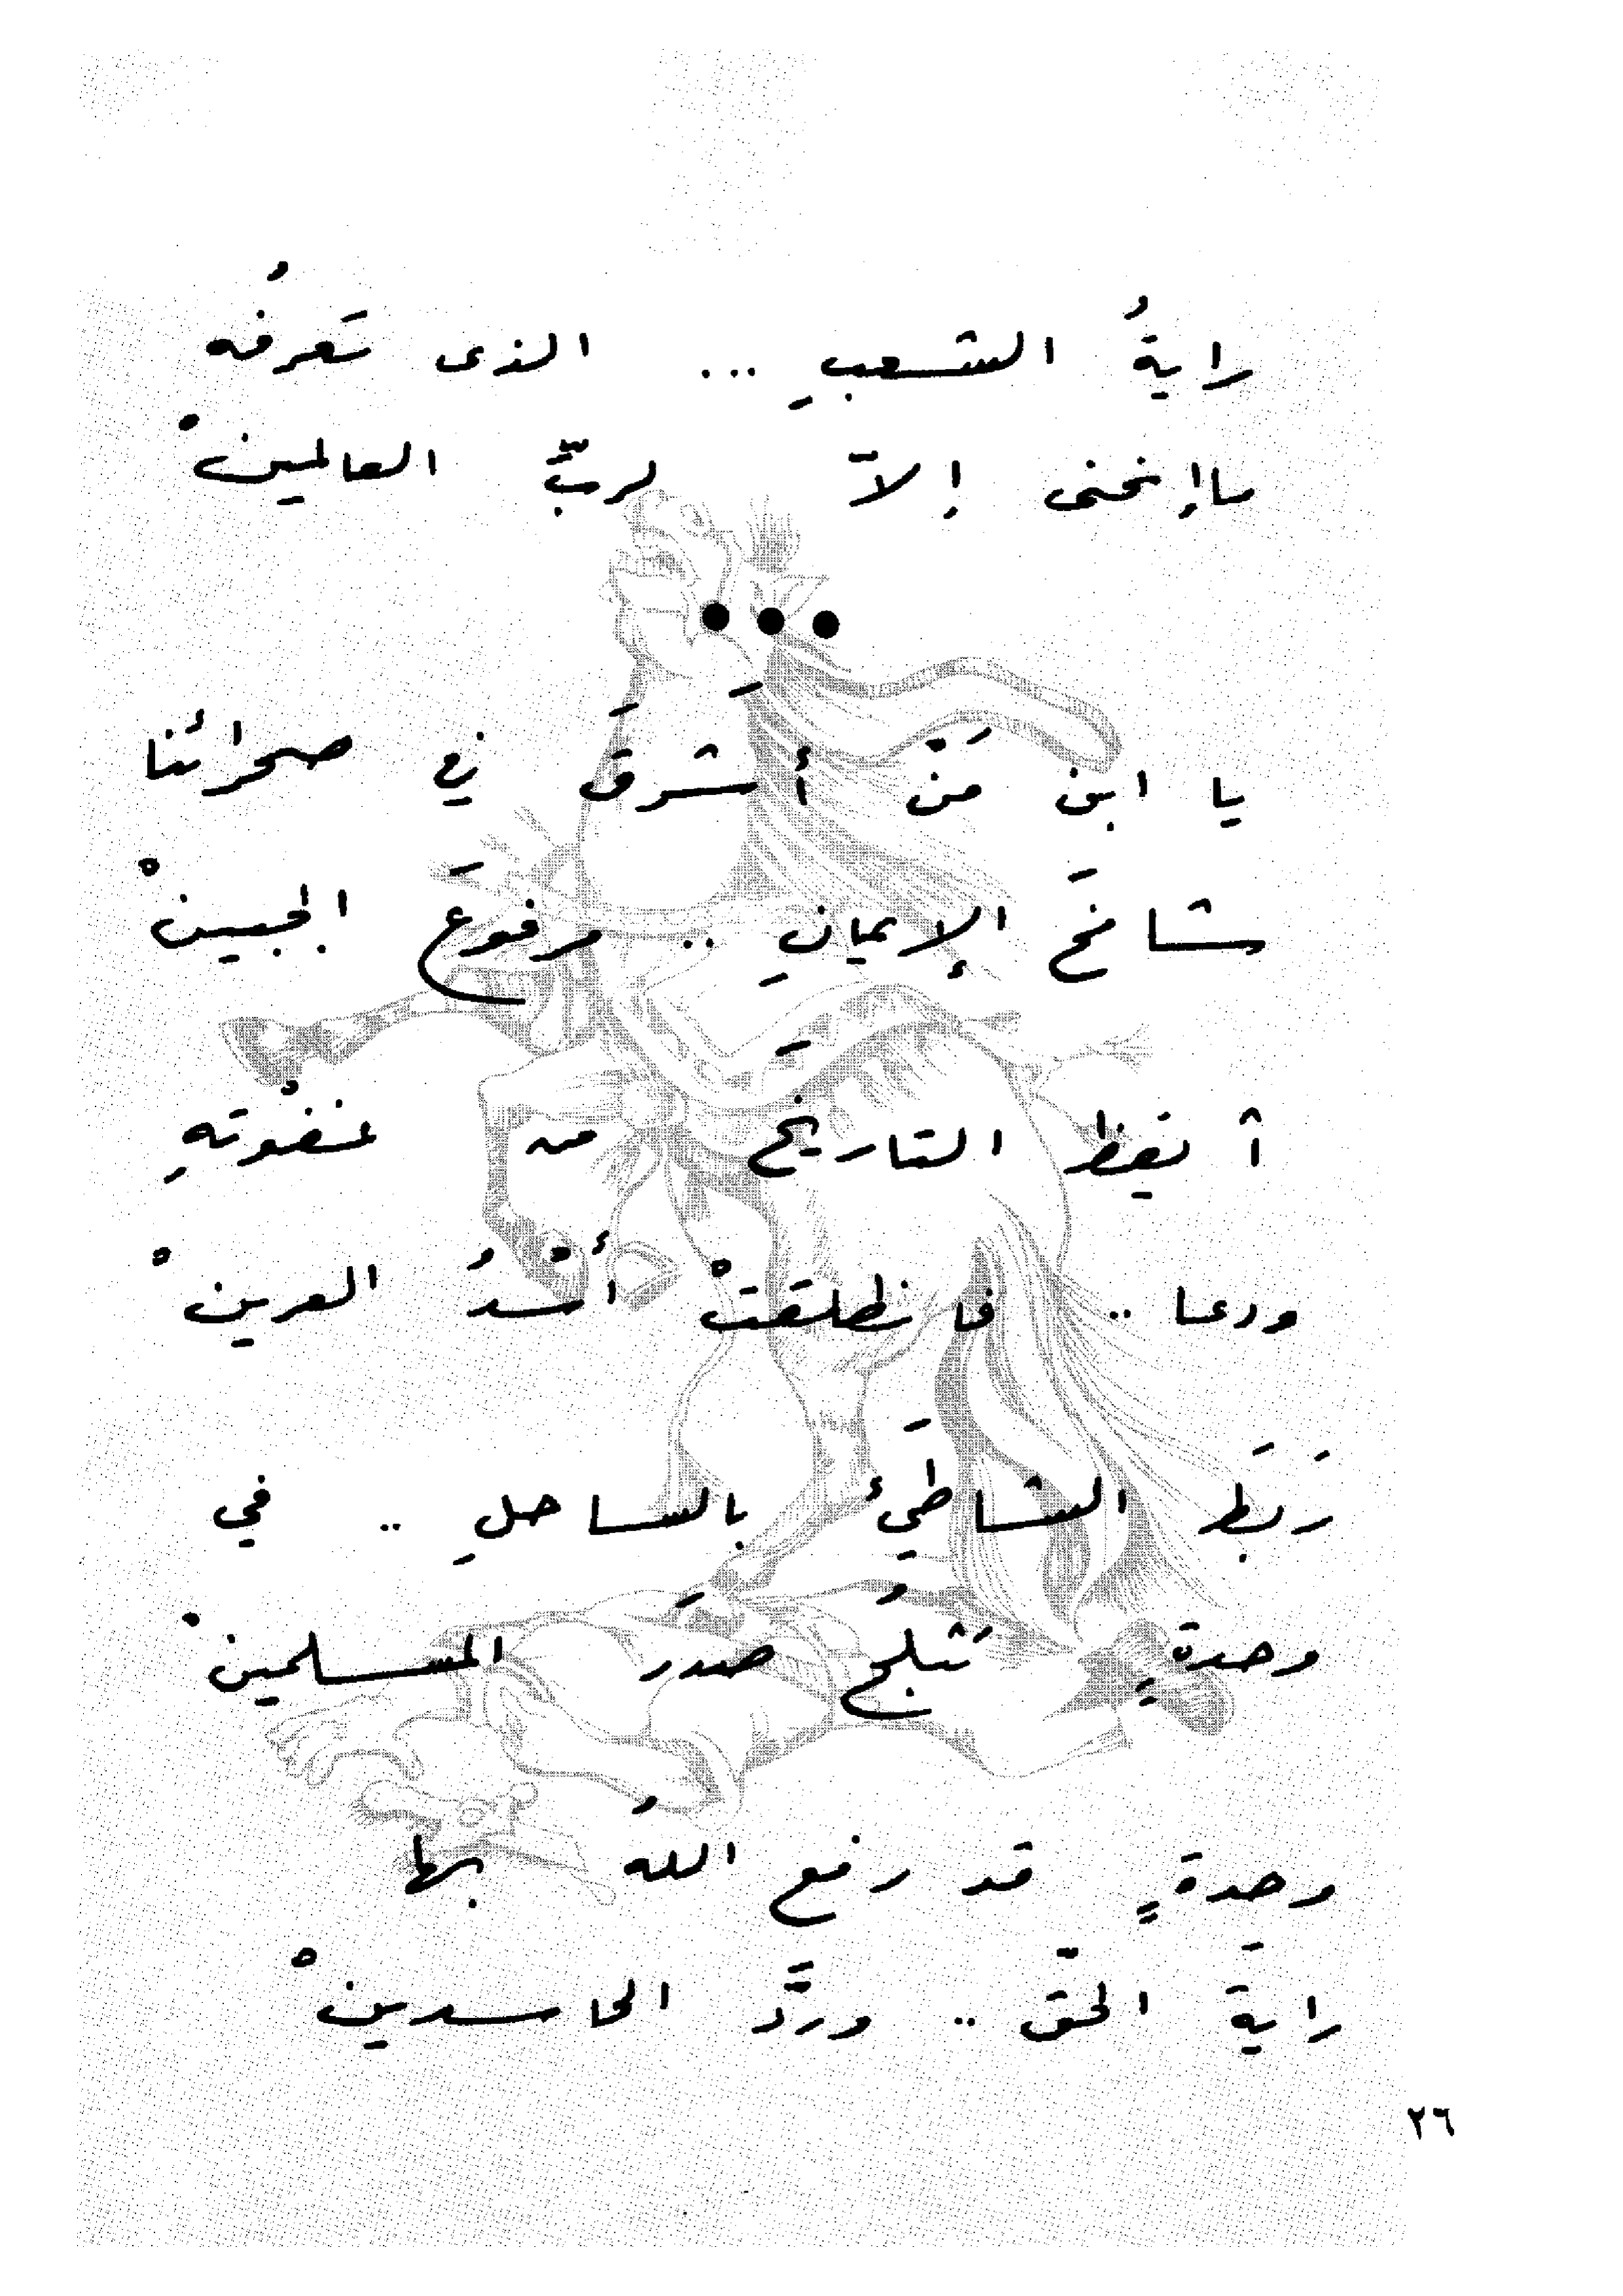 رايةُ الشعبِ ... الذى تَعرفُه
ماإنحنى إلاّ لربِّ العالمينْ
•••
يا ابن مَنْ أشرقَ في صحرائنا
شامخَ الإيمانِ .. مرفوعَ الجبينْ
أيقظ التاريخَ من غفْوتهِ
ودعا .. فانطلقتْ أُسْدُ العرينْ
رَبَطَ الشاطئَ بالساحلِ .. في
وحدةٍ تَثلجُ صدرَ المسلمينْ
وحدةٍ قد رفع اللهُ بها
رايةَ الحقّ .. وردَّ الحاسدينْ
٢٦